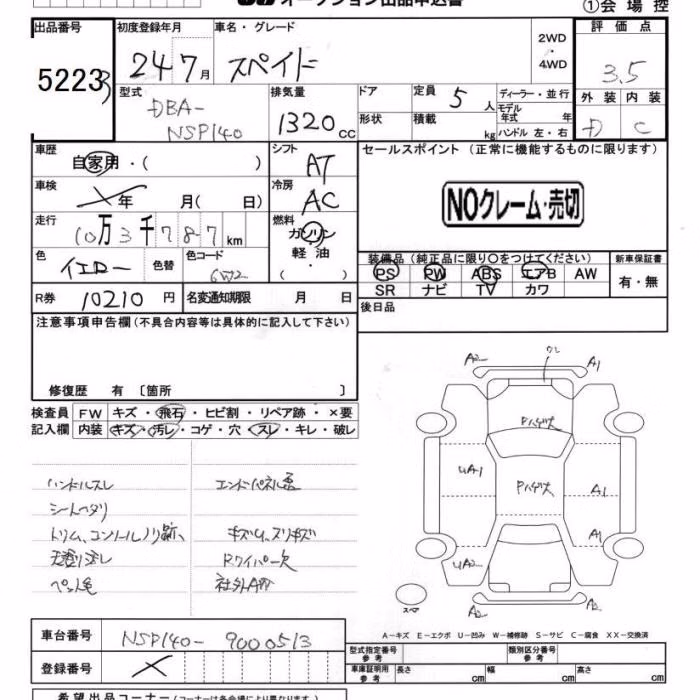 オークション出品申込書
①会場控
出品番号
52233
初度登録年月
24 7月
車名・グレード
スペイド
2WD
・
4WD
評価点
3.5
型式
DBA-
NSP140
排気量
1320cc
ドア
定員 5人
ディーラー・並行
モデル年式 年
形状
積載 kg
ハンドル 左・右
外装 内装
D C
車歴
自家用・( )
シフト
AT
セールスポイント (正常に機能するものに限ります)
NOクレーム・売切
車検
年 月( 日)
冷房
AC
走行
10万3千787km
燃料
ガソリン
軽油
・
( )
色
イエロー
色替
色コード
R券 10210円
名変通知期限 月 日
装備品(純正品に限り○をつけてください)
PS PW ABS エアB AW
SR ナビ TV カワ
新車保証書
有・無
後日品
注意事項申告欄(不具合内容等は具体的に記入して下さい)
修復歴 有〔箇所 〕
検査員 FW キズ・飛石・ヒビ割・リペア跡・×要
記入欄 内装 キズ・汚レ・コゲ・穴・スレ・キレ・破レ
ハンドルスレ
シートヘタリ
キズ凹、スリキズ
Rワイパー欠
社外AW
A2 ワレ A1
Pハゲ大
UA1 Pハゲ大 A1
A1
UA2
スペア A2 A2
A-キズ E-エクボ U-凹み W-補修跡 S-サビ C-腐食 XX-交換済
車台番号 NSP140-9000513
登録番号
型式指定番号 参考
類別区分番号 参考
車庫証明用 参考 長さ cm 幅 cm 高さ cm
希望出品コーナー(コーナーは各会場により異なります)